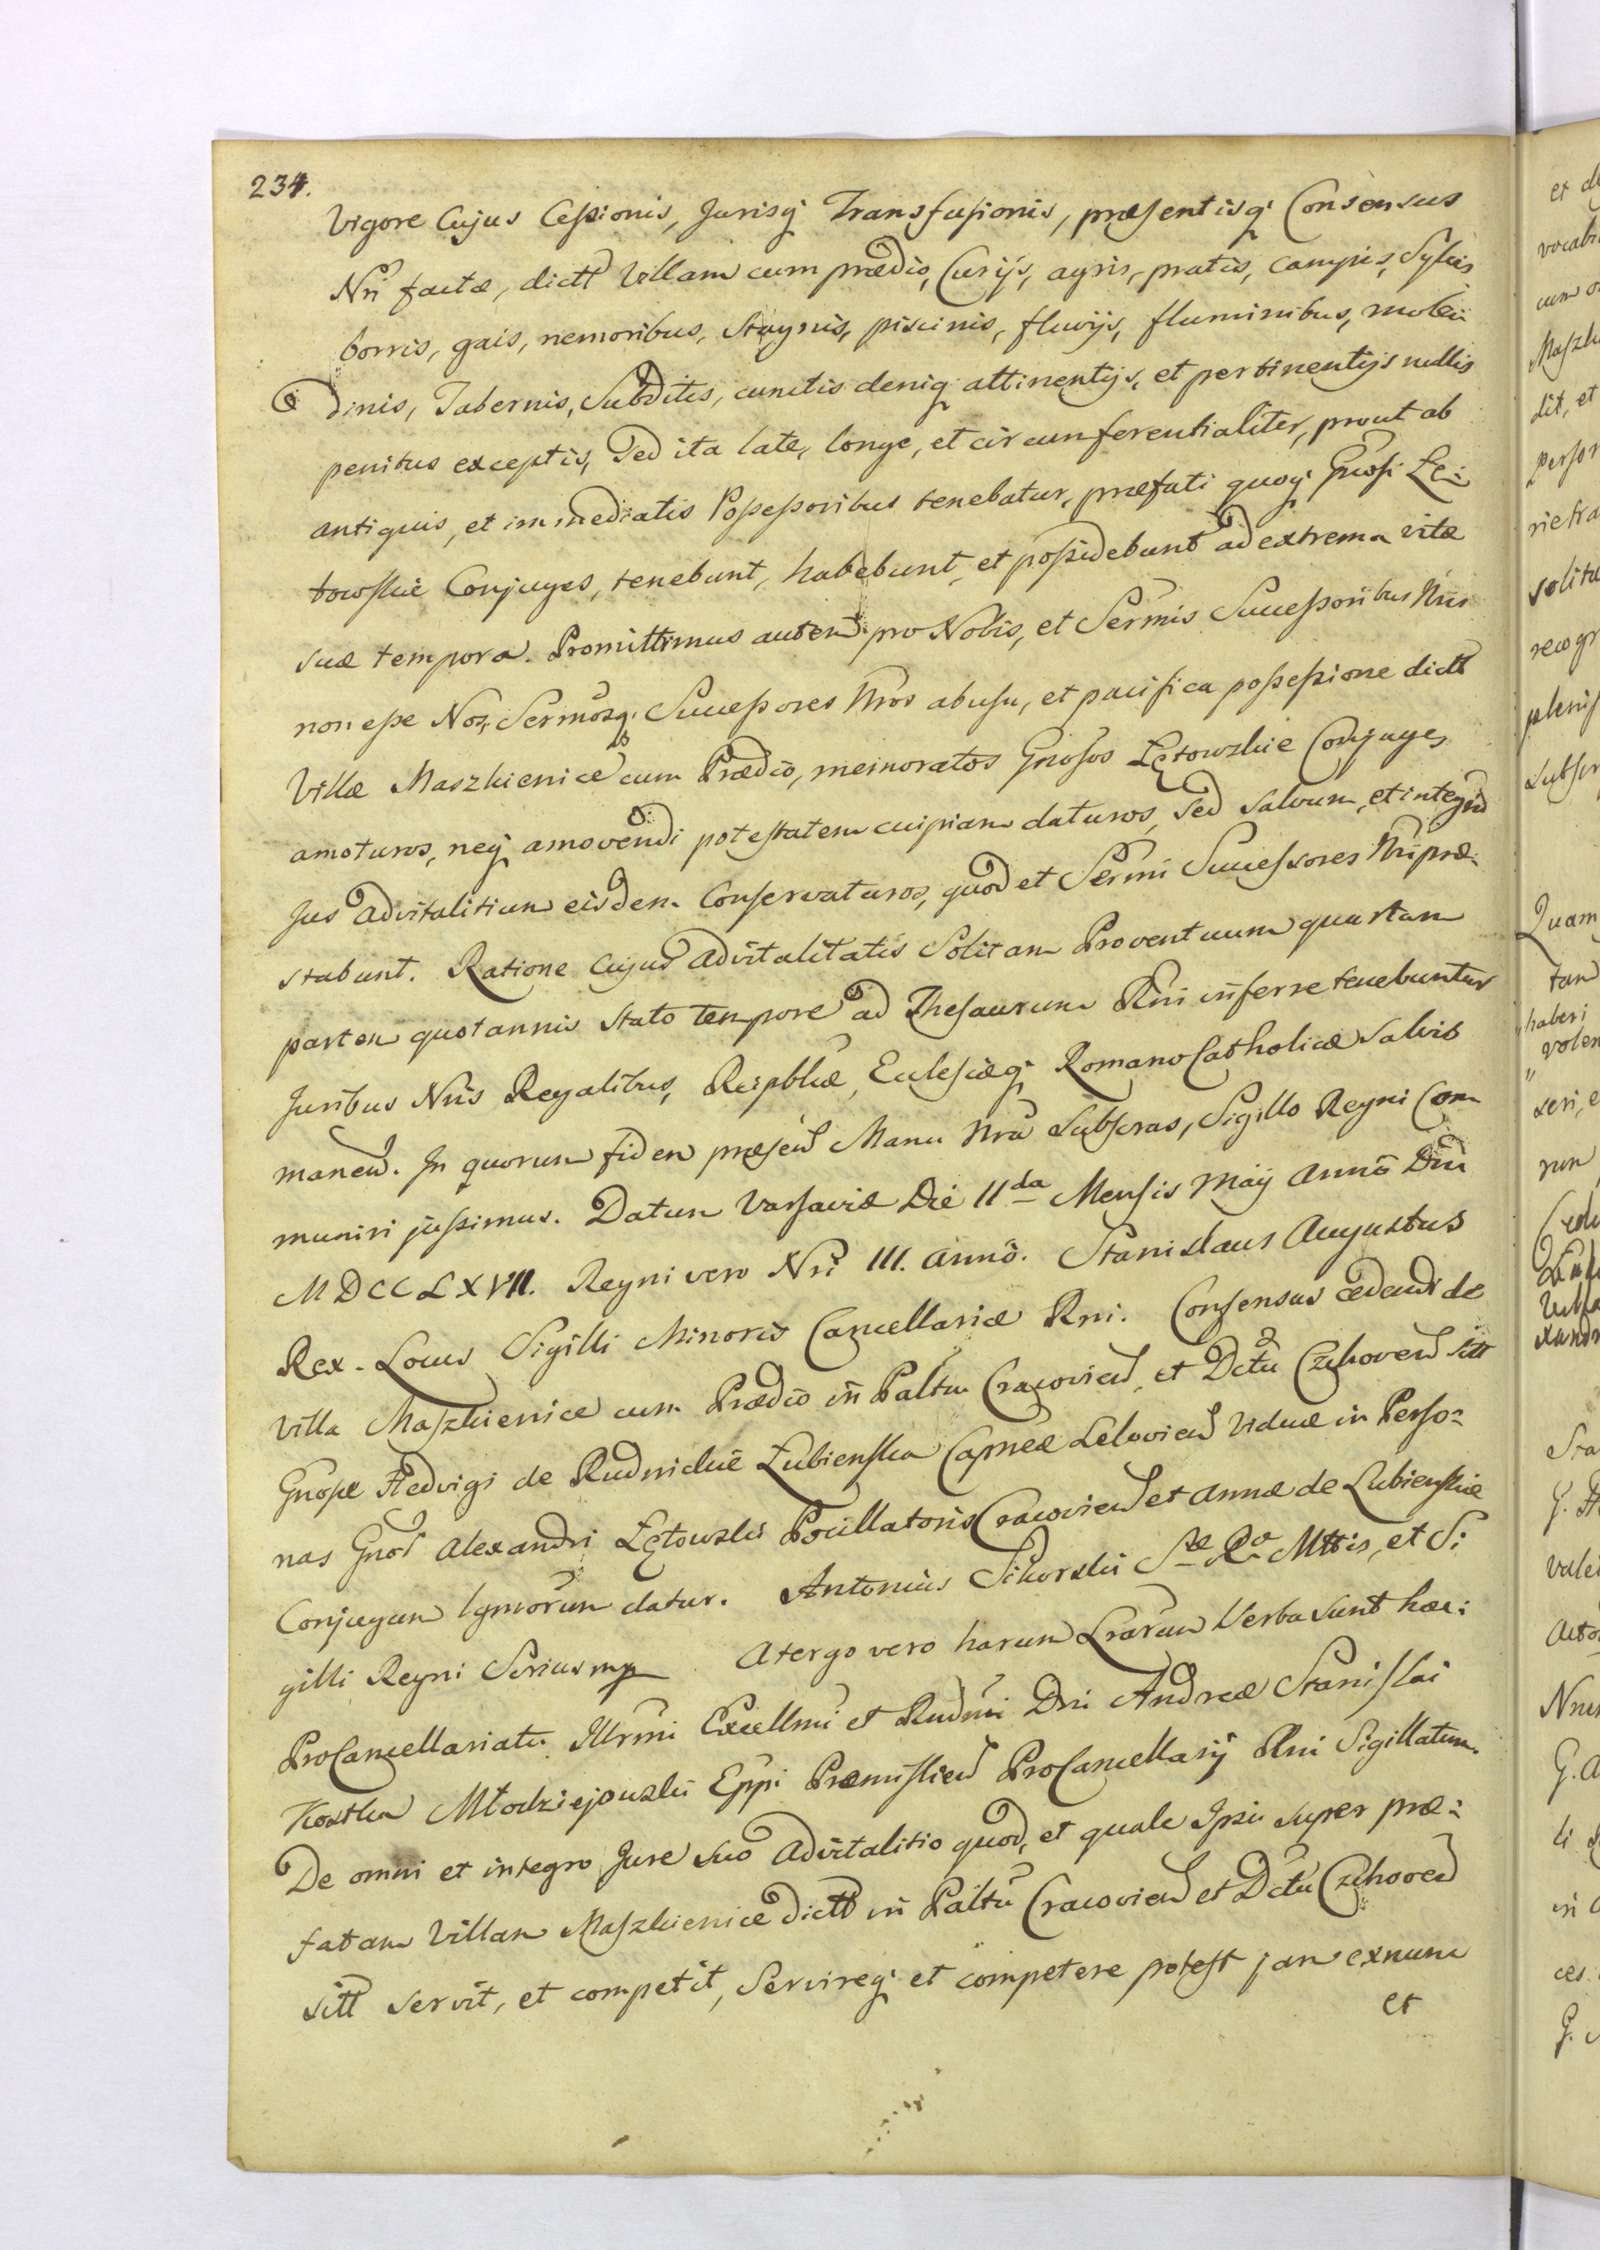 234.
Vigore Cujus Cessionis, Jurisq. Transfusionis, præsentisq. Consensus
Nri factæ, dictt Villam cum prædio, Curijs, agris, pratis, campis, Sylvis
borris, gais, nemoribus, stagnis, piscinis, fluvijs, fluminibus, molen-
dinis, Tabernis, Subditis, cunctis deniq. attinentijs, et pertinentijs nullis
penitus exceptis, Sed ita late, longe, et circumferentialiter, prout ab
antiquis, et immediatis Possessoribus tenebatur, præfati quoq. Gnosi Lę:
towskie Conjuges, tenebunt, habebunt, et possidebunt ad extrema vitæ
suæ tempora. Promittimus autem pro Nobis, et Sermis Successoribus Nris
non esse Nos, Sermosq. Successores Nros ab usu, et pacifica possessione dictt
Villæ Maszkienice cum Prædio, memoratos Gnosos Lętowskie Conjuges
amoturos, neq. amovendi potestatem cuipiam daturos, sed salvum, et integrũ
Jus advitalitium eisdem Conservaturos, quod et Sermi Successores Nri præ-
stabunt. Ratione cujus advitalitatis Solitam Proventuum quartam
partem quotannis stato tempore ad Thesaurum Rni inferre tenebuntur
Juribus Nris Regalibus, Reipblicæ, Ecclesiæq. Romano Catholicæ salvis
manen. In quorum fidem præsen Manu Nra Subscras, Sigillo Regni Com
muniri jussimus. Datum Varsaviæ Die 11da Mensis Maij Anno Dni
MDCCLXVII. Regni vero Nri III. Anno. Stanislaus Augustus
Rex. Locus Sigilli Minoris Cancellariæ Rni. Consensus cedendi de
Villa Maszkienice cum Prædio in Palttu Cracovien, et Dctu Czchoven sitt
Gnosæ Hedvigi de Rudnickie Łubienska Capneæ Leloviens Viduæ in Perso=
nas Gnor Alexandri Lętowski Pocillatoris Cracovien et Annæ de Lubienskie
Conjugum lgmorum datur. Antonius Sikorski Sæ Ræ Mttis, et Si:
gilli Regni Scrius mp A tergo vero harum Lrarum Verba sunt hæc:
ProCancellariatu Illrmi Excellmi et Rudmi Dni Andreæ Stanislai
Kostka Młodziejowski Eppi Præmislien ProCancellarij Rni Sigillatum.
De omni et integro Jure suo Advitalitio quod, et quale Ipsi super præ:
fatam Villam Maszkienice dictt in Palttu Cracovien et Dctu Czchoven
sitt servit, et competit, Servireq. et competere potest jam exnunc
et